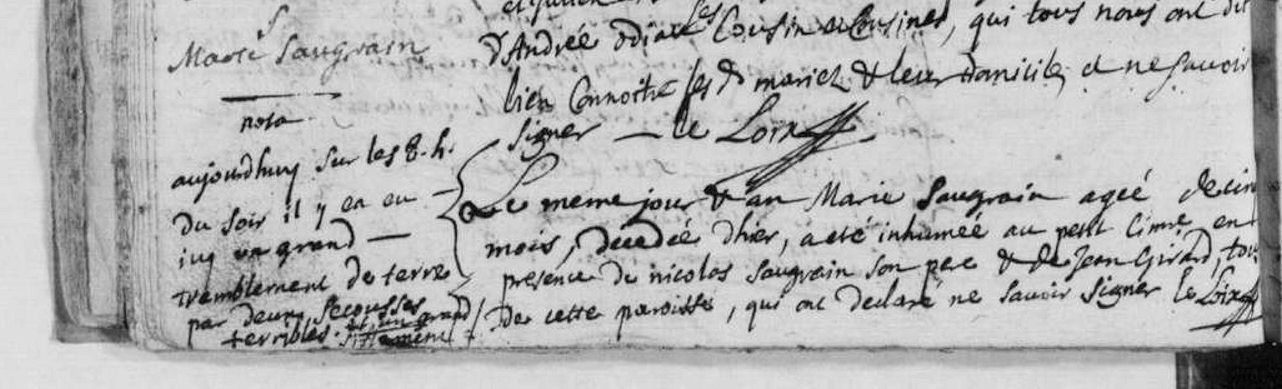 Marie Saugrain
nota
aujourdhuy sur les 8. h.
du soir il y en eu
un grand —
tremblement de terre
par deux secousses
terribles. et un grand
sifflement
d'André odiau les Cousin et Cousines, qui tous nous ont dit
bien Connoitre les d mariez & leur domicile, et ne savoir
signer — le Loix
Le meme jour & an Marie Saugrain ageé de cin
mois, decedée d'hier, a eté inhumée au petit Cimre en
presence de nicolas Saugrain son pere & de Jean Girard, tou
de cette paroisse, qui ont declaré ne savoir signer le Loix